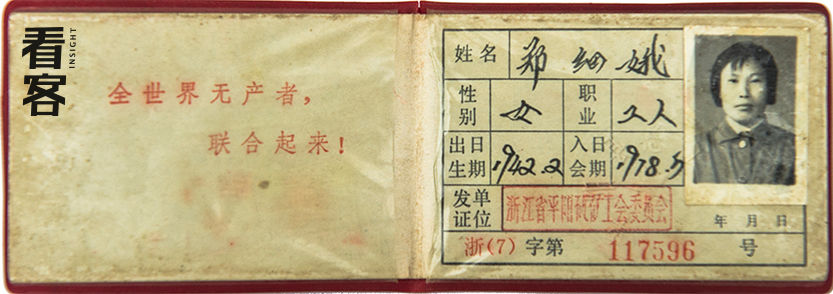 看客
INSIGHT
全世界无产者，
联合起来！
姓名 郑细娥
性别 女 职业 工人
出生日期 1942.2 入会日期 1978.5
发证单位 浙江省平阳矾矿工会委员会
年 月 日
浙(7)字第 117596 号